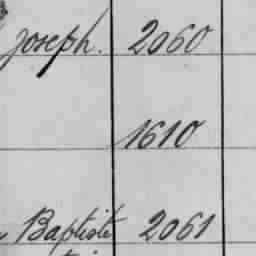 Joseph. 2060
1610
Baptiste 2061